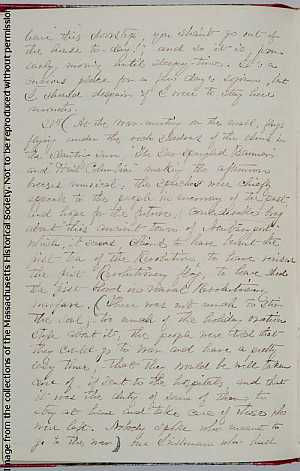 leave this doorstep, you shan't go out of
the house to-day!" and so it is, from
early morning until sleepy-time. It is a
curious place for a few days sojourn, but
I should despair if I were to stay here
months.
At the War-meeting on the mall, flags
flying under the and
"The Star Spangled Banner"
and "Hail Columbia" making the afternoon
breezes musical, the speeches were chiefly
appeals to the people in memory of the past
and hope for the future,
about this ancient town of Newburyport
which, it seems, claims to have burnt the
first tea of the Revolution, to have raised
the first Revolutionary flag, to have shed
the first blood in Revolutionary
warfare. (There was not much to stir
the soul, too much of the holiday oration
style about it, the people were told that
they could go to war and have a pretty
easy time, that they would be well taken
care of, if sent to the hospitals, and that
it was the duty of some of them to
stay at home and take care of those who
were left. Nobody spoke who meant to
go to the war) but who had
Image from the collections of the Massachusetts Historical Society, Not to be reproduced without permission